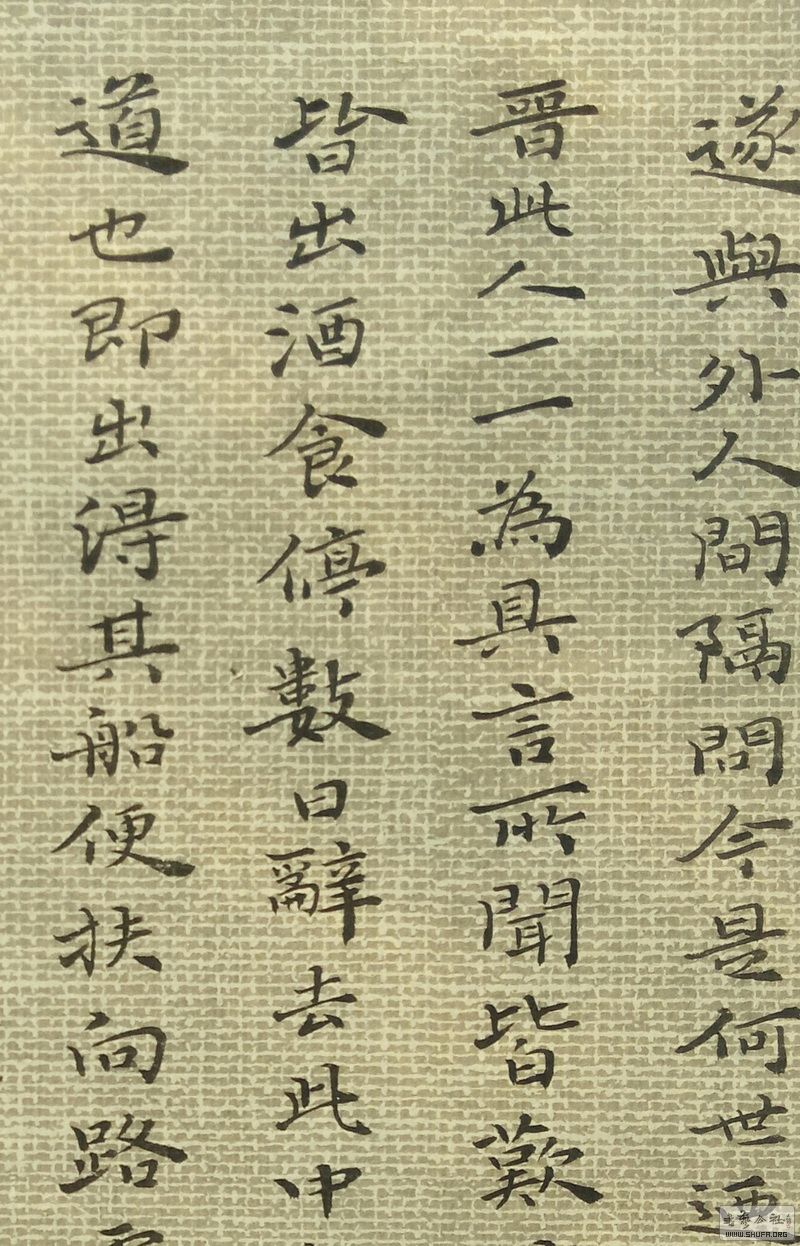 遂與外人間隔問今是何世迺
晉此人一一為具言所聞皆歎
皆出酒食停數日辭去此中
道也即出得其船便扶向路
WWW.SHUFA.ORG